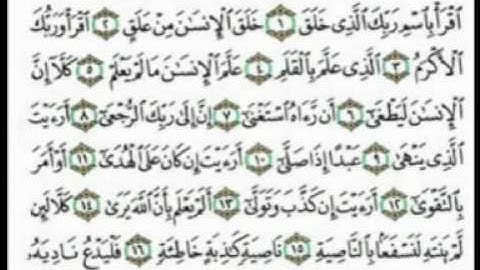 ٱقْرَأْ بِٱسْمِ رَبِّكَ ٱلَّذِى خَلَقَ ١ خَلَقَ ٱلْإِنسَٰنَ مِنْ عَلَقٍ ٢ ٱقْرَأْ وَرَبُّكَ
ٱلْأَكْرَمُ ٣ ٱلَّذِى عَلَّمَ بِٱلْقَلَمِ ٤ عَلَّمَ ٱلْإِنسَٰنَ مَا لَمْ يَعْلَمْ ٥ كَلَّآ إِنَّ
ٱلْإِنسَٰنَ لَيَطْغَىٰٓ ٦ أَن رَّءَاهُ ٱسْتَغْنَىٰٓ ٧ إِنَّ إِلَىٰ رَبِّكَ ٱلرُّجْعَىٰٓ ٨ أَرَءَيْتَ
ٱلَّذِى يَنْهَىٰ ٩ عَبْدًا إِذَا صَلَّىٰٓ ١٠ أَرَءَيْتَ إِن كَانَ عَلَى ٱلْهُدَىٰٓ ١١ أَوْ أَمَرَ
بِٱلتَّقْوَىٰٓ ١٢ أَرَءَيْتَ إِن كَذَّبَ وَتَوَلَّىٰٓ ١٣ أَلَمْ يَعْلَم بِأَنَّ ٱللَّهَ يَرَىٰ ١٤ كَلَّا لَئِن
لَّمْ يَنتَهِ لَنَسْفَعًۢا بِٱلنَّاصِيَةِ ١٥ نَاصِيَةٍ كَٰذِبَةٍ خَاطِئَةٍ ١٦ فَلْيَدْعُ نَادِيَهُۥ